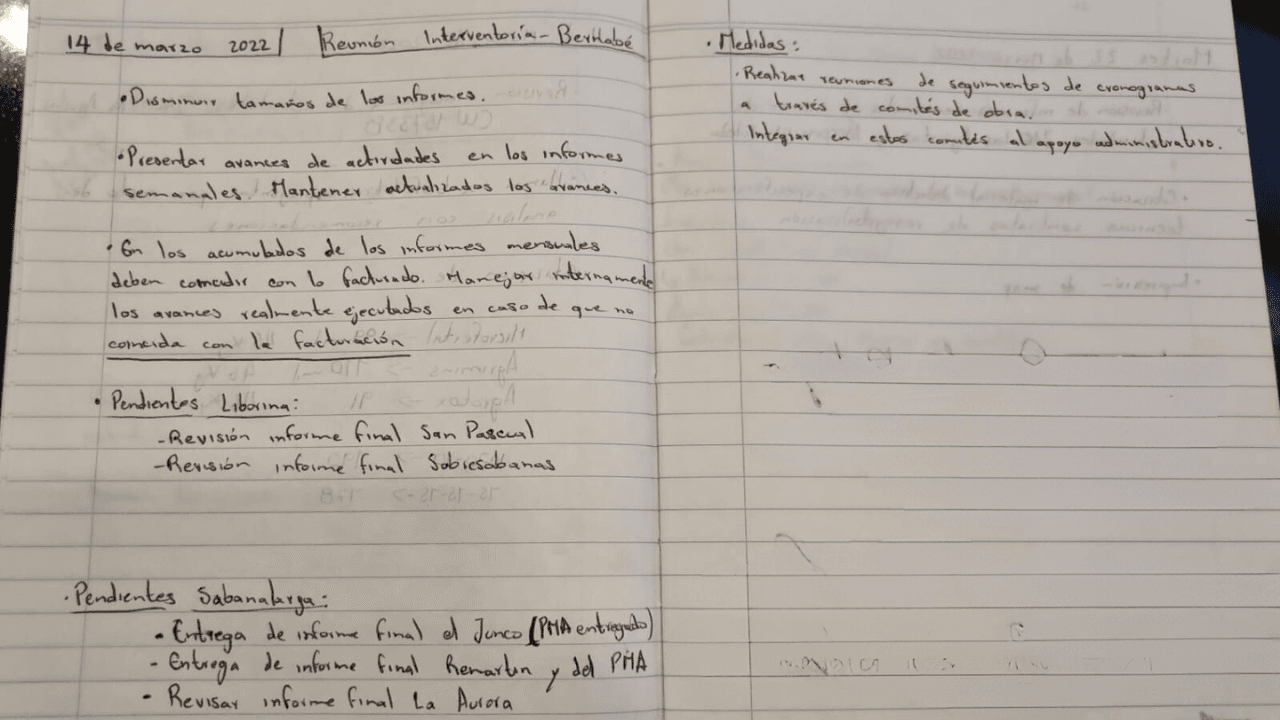 14 de marzo 2022 | Reunión Interventoría - Berilabé
• Disminuir tamaños de los informes.
• Presentar avances de actividades en los informes
semanales. Mantener actualizados los avances.
• En los acumulados de los informes mensuales
deben coincidir con lo facturado. Manejar internamente
los avances realmente ejecutados en caso de que no
coincida con la facturación
• Pendientes Liborina:
- Revisión informe final San Pascual
- Revisión informe final Sobresabanas
• Pendientes Sabanalarga:
- Entrega de informe final el Junco (PMA entregado)
- Entrega de informe final Remartin y del PMA
- Revisar informe final La Aurora
• Medidas:
• Realizar reuniones de seguimientos de cronogramas
a través de comités de obra.
Integrar en estos comités al apoyo administrativo.